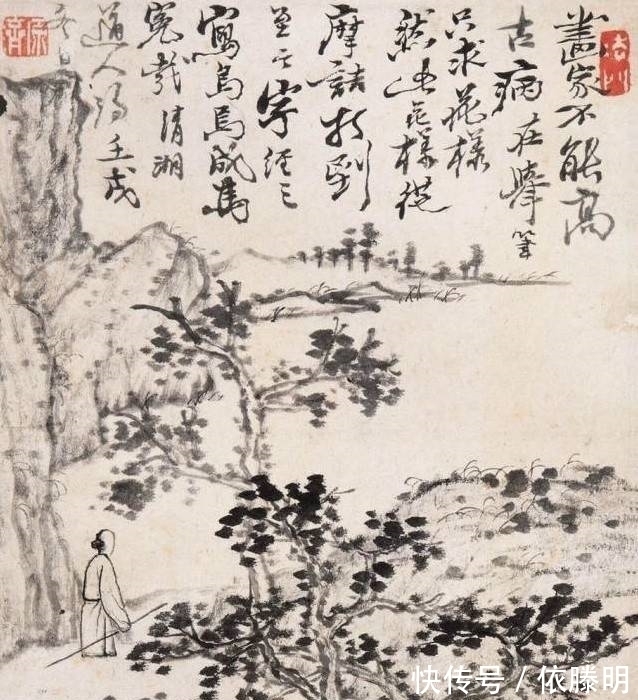 畫家不能高
古病在舉筆
只求花樣
然此花樣從
摩詰打到
至今字經三
寫烏焉成馬
冤哉清湘
道人濟壬戌
冬日
快传号 / 依滕明